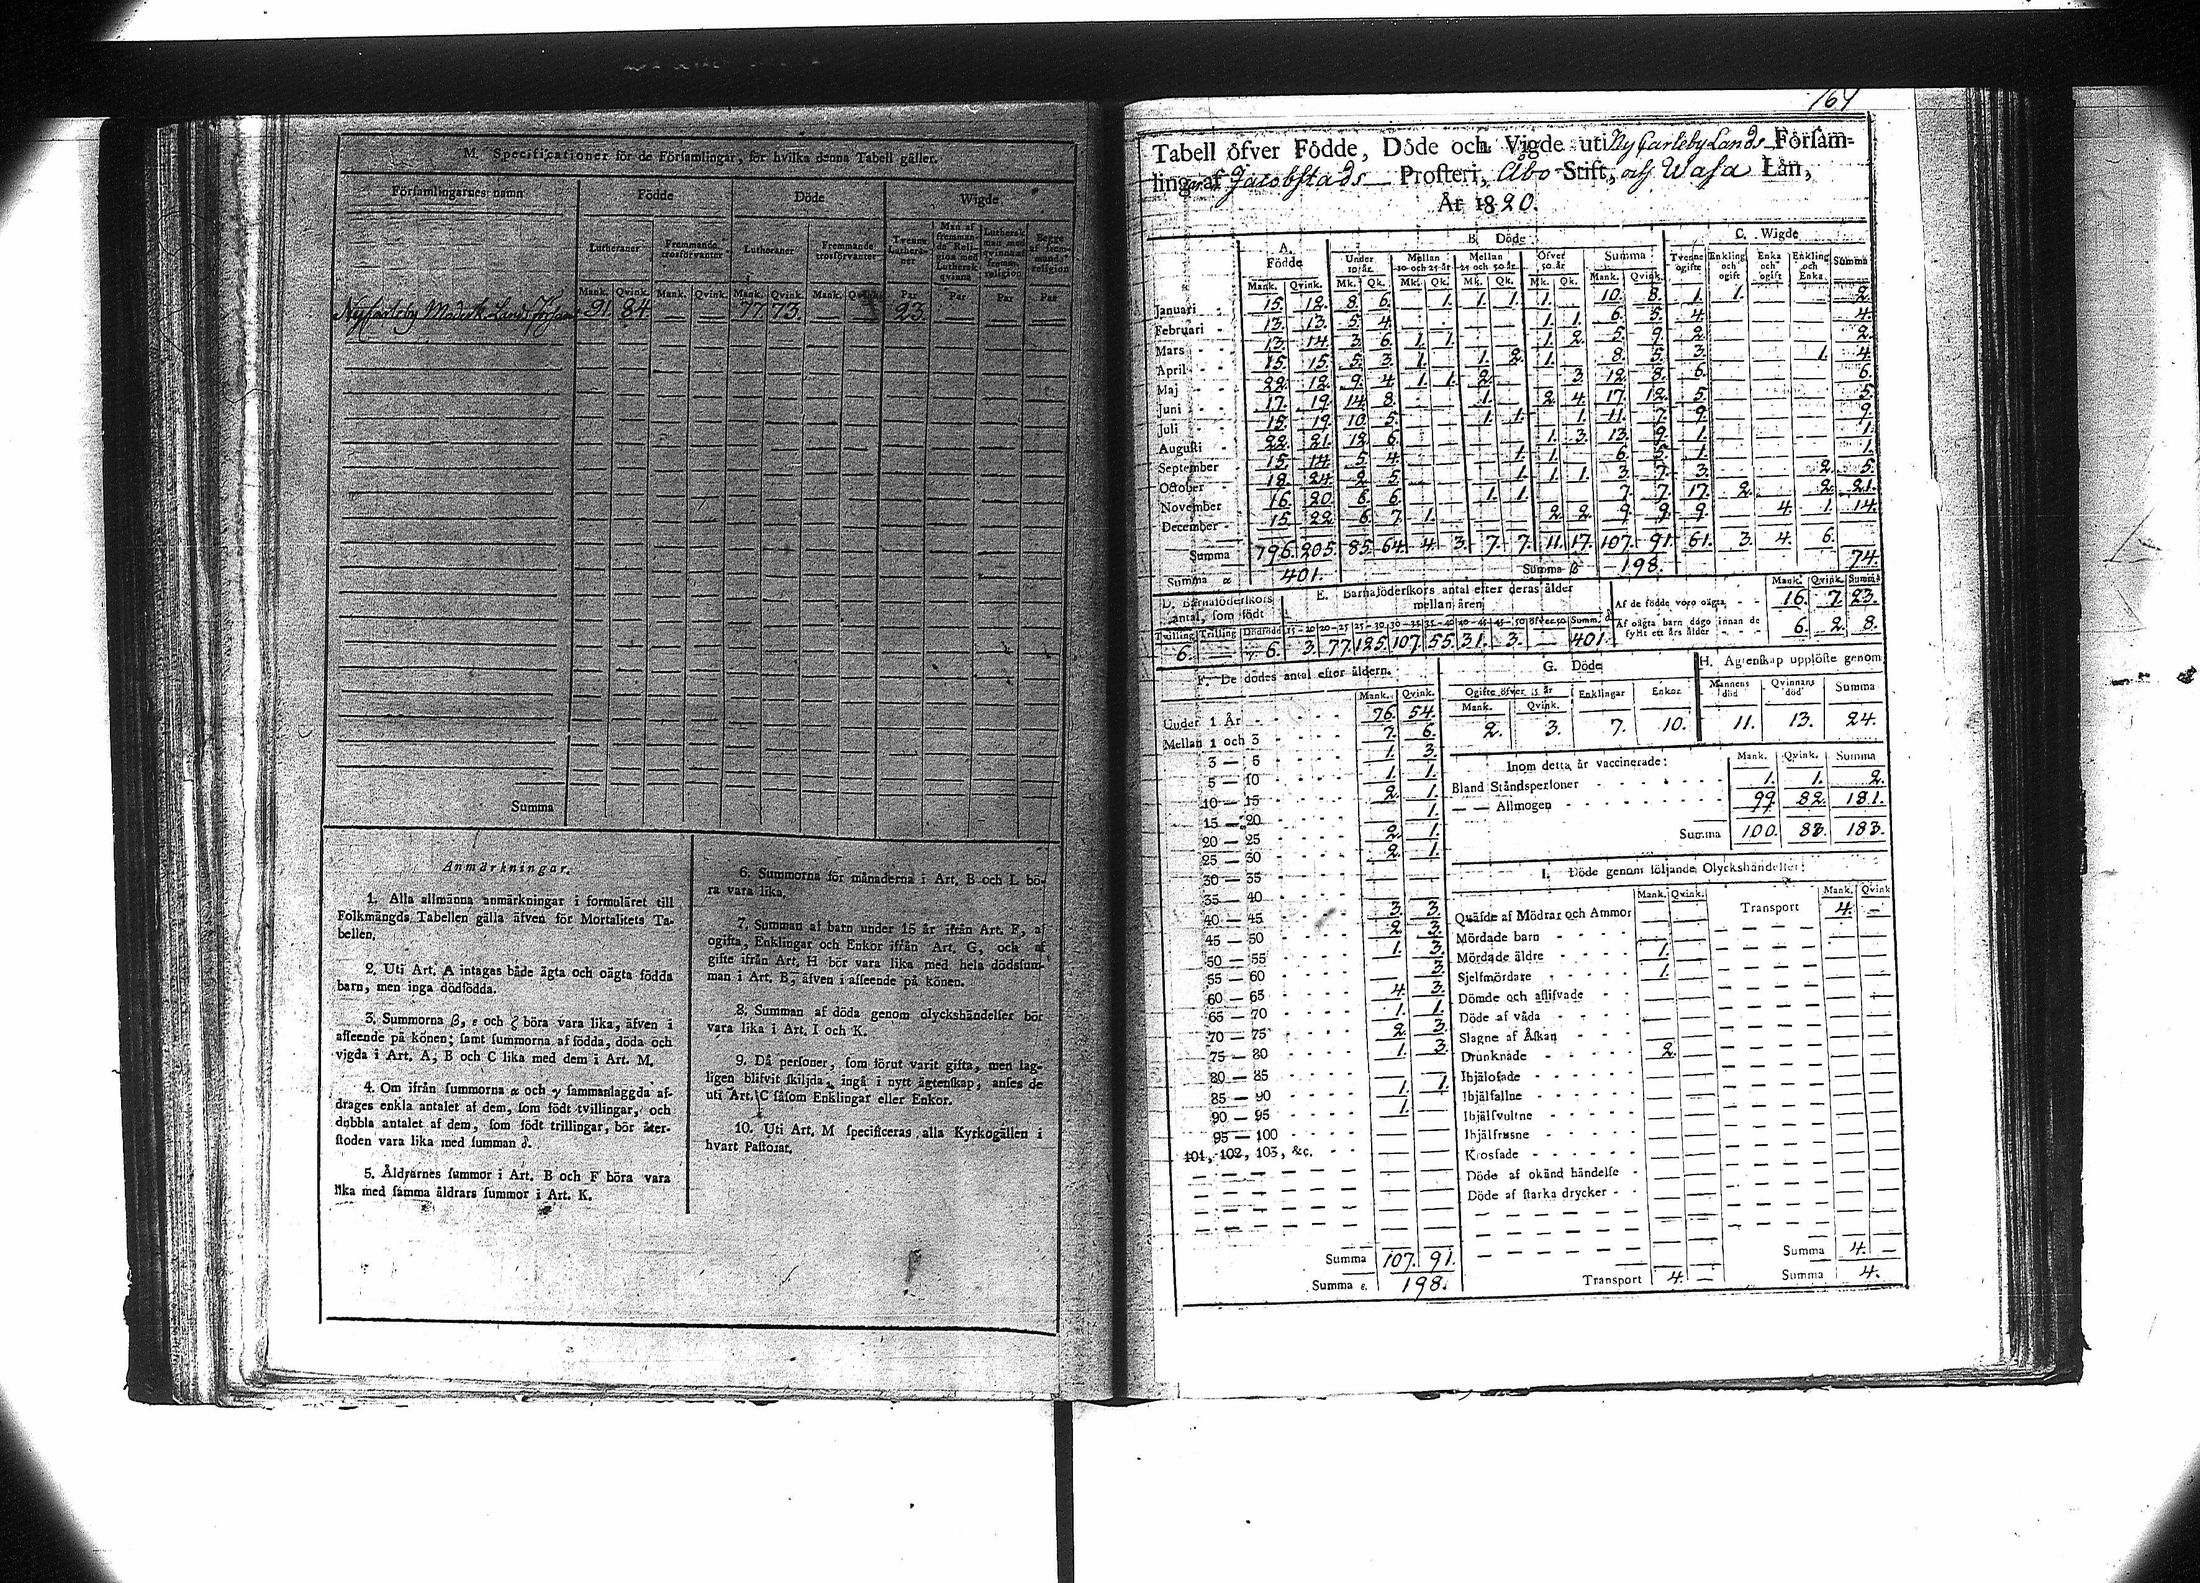 M. Specificationer för de Församlingar, för hvilka denna Tabell gäller.
Församlingarnes namn Födde Döde Wigde
Lutheraner Fremmande trosförvanter Lutheraner Fremmande trosförvanter Tvenne Lutheraner Man af fremmande Religion med Luthersk qvinna Luthersk man med qvinna af fremm. religion Begge af fremmande religion
Mank. Qvink. Mank. Qvink. Mank. Qvink. Mank. Qvink. Par Par Par Par
Nycarleby Moderk. Lands förs. 91. 84 — — 77. 73. — — 23. — — —
Summa
Anmärkningar.
1. Alla allmänna anmärkningar i formuläret till
Folkmängds Tabellen gälla äfven för Mortalitets Ta-
bellen.
2. Uti Art. A intagas både ägta och oägta födda
barn, men inga dödfödda.
3. Summorna β, ε och ζ böra vara lika, äfven i
afseende på könen; samt summorna af födda, döda och
vigda i Art. A, B och C lika med dem i Art. M.
4. Om ifrån summorna α och γ sammanlaggda af-
drages enkla antalet af dem, som födt tvillingar, och
dubbla antalet af dem, som födt trillingar, bör åter-
stoden vara lika med summan δ.
5. Åldrarnes summor i Art. B och F böra vara
lika med samma åldrars summor i Art. K.
6. Summorna för månaderna i Art. B och L bö-
ra vara lika.
7. Summan af barn under 15 år ifrån Art. F, af
ogifta, Enklingar och Enkor ifrån Art. G, och af
gifte ifrån Art. H bör vara lika med hela dödssum-
man i Art. B, äfven i afseende på könen.
8. Summan af döda genom olyckshändelser bör
vara lika i Art. I och K.
9. Då personer, som förut varit gifta, men lag-
ligen blifvit skiljda, ingå i nytt ägtenskap, anses de
uti Art. C såsom Enklingar eller Enkor.
10. Uti Art. M specificeras alla Kyrkogällen i
hvart Pastorat.
164
Tabell öfver Födde, Döde och Vigde uti Ny Carleby Lands Försam-
ling af Jacobstads Prosteri, Åbo Stift, och Wasa Län,
År 1820.
A Födde B. Döde C. Wigde
Under 10 år. Mellan 10 och 25 år Mellan 25 och 50 år Öfver 50 år Summa Tvenne ogifte Enkling och ogift Enka och ogift Enkling och Enka Summa
Mank. Qvink. Mk. Qk. Mk. Qk. Mk. Qk. Mk. Qk. Mank. Qvink.
Januari 15. 12. 8. 6. — 1. 1. 1. 1. — 10. 8. 1. 1. — — 2.
Februari 13. 13. 5. 4. — — — — 1. 1. 6. 5. 4. — — — 4.
Mars 13. 14. 3. 6. 1. 1. — — 1. 2. 5. 9. 2. — — — 2.
April 15. 15. 5. 3. 1. — 1. 2. 1. — 8. 5. 3. — — 1. 4.
Maj 22. 12. 9. 4. 1. 1. 2. — — 3. 12. 8. 6. — — — 6.
Juni 17. 19. 14. 8. — — 1. — 2. 4. 17. 12. 5. — — — 5.
Juli 15. 19. 10. 5. — — 1. 1. — 1. 11. 7. 9. — — — 9.
Augusti 22. 21. 12. 6. — — — — 1. 3. 13. 9. 1. — — — 1.
September 15. 14. 5. 4. — — — 1. 1. — 6. 5. 1. — — — 1.
October 18. 24. 2. 5. — — — 1. 1. 1. 3. 7. 3. — — 2. 5.
November 16. 20. 6. 6. — — 1. 1. — — 7. 7. 17. 2. — 2. 21.
December 15. 22. 6. 7. 1. — — — 2. 2. 9. 9. 9. — 4. 1. 14.
Summa 196. 205. 85. 64. 4. 3. 7. 7. 11. 17. 107. 91. 61. 3. 4. 6.
Summa α 401. Summa β 198. 74.
D. Barnaföderskors antal, som födt
Tvilling Trilling Dödfödde
6. — 6.
E. Barnaföderskors antal efter deras ålder
mellan åren
15—20 20—25 25—30 30—35 35—40 40—45 45—50 öfver 50 Summ. δ
3. 77. 125. 107. 55. 31. 3. — 401.
Mank. Qvink. Summa
Af de födde voro oägta 16. 7. 23.
Af oägta barn dogo innan de fyllt ett års ålder 6. 2. 8.
F. De dödes antal efter åldern.
Mank. Qvink.
Under 1 År 76. 54.
Mellan 1 och 3 7. 6.
3 — 5 1. 3.
5 — 10 1. 1.
10 — 15 2. 1.
15 — 20 — 1.
20 — 25 2. 1.
25 — 30 2. 1.
30 — 35 — —
35 — 40 — —
40 — 45 3. 3.
45 — 50 2. 3.
50 — 55 1. 3.
55 — 60 — 3.
60 — 65 4. 3.
65 — 70 1. 1.
70 — 75 2. 3.
75 — 80 1. 3.
80 — 85 — —
85 — 90 1. 1.
90 — 95 1. —
95 — 100
101, 102, 103, &c.
Summa 107. 91.
Summa ε. 198.
G. Döde
Ogifte öfver 15 år Enklingar Enkor
Mank. Qvink.
2. 3. 7. 10.
H. Ägtenskap upplöste genom
Mannens död Qvinnans död Summa
11. 13. 24.
Inom detta år vaccinerade: Mank. Qvink. Summa
Bland Ståndspersoner 1. 1. 2.
— — Allmogen 99. 82. 181.
Summa 100. 83. 183.
I. Döde genom följande Olyckshändelser:
Mank. Qvink. Mank. Qvink
Quäfde af Mödrar och Ammor — — Transport 4. —
Mördade barn — —
Mördade äldre 1. —
Sjelfmördare 1. —
Dömde och aflifvade — —
Döde af våda — —
Slagne af Åskan — —
Drunknade 2. —
Ihjälosade — —
Ihjälfallne — —
Ihjälsvultne — —
Ihjälfrusne — —
Krossade — —
Döde af okänd händelse — —
Döde af starka drycker — —
Summa 4. —
Transport 4. — Summa 4.